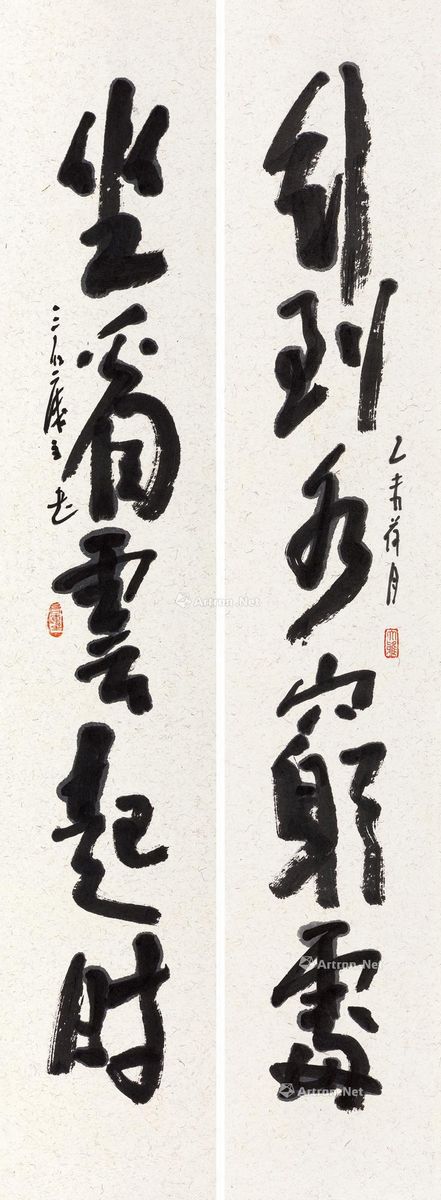 行到水窮處
乙未荷月
坐看雲起时
Artron.Net
Artron.Net
Artron.Net